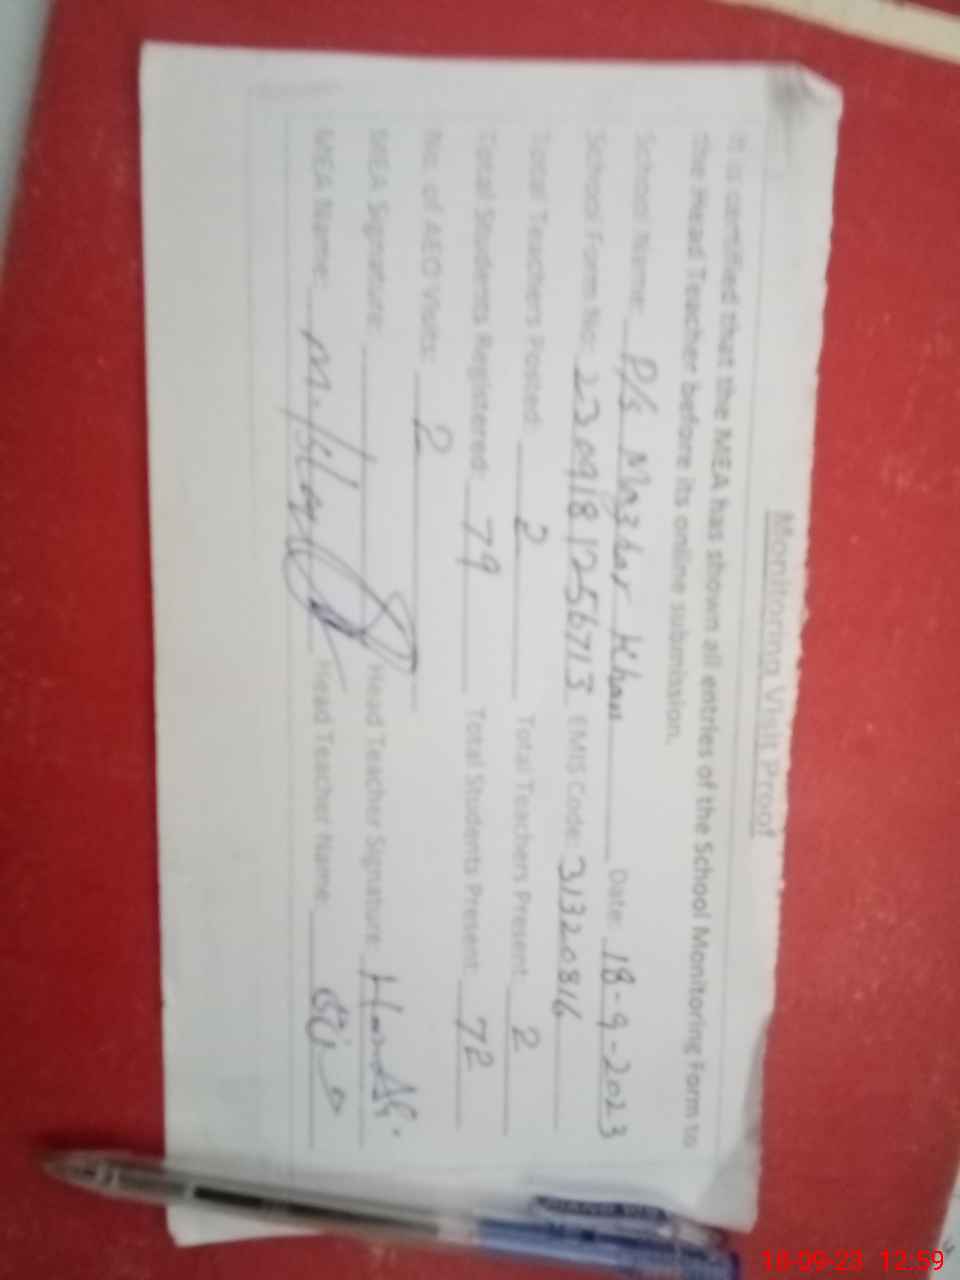 Monitoring Visit Proof
It is certified that the MEA has shown all entries of the School Monitoring Form to
the Head Teacher before its online submission.
School Name: P/S Mazhar Khan Date: 18-9-2023
School Form No: EMIS Code: 31320816
Total Teachers Posted: 2 Total Teachers Present: 2
Total Students Registered: 79 Total Students Present: 72
No. of AEO Visits: 2
MEA Signature: Head Teacher Signature:
MEA Name: Head Teacher Name:
18-09-23 12:59